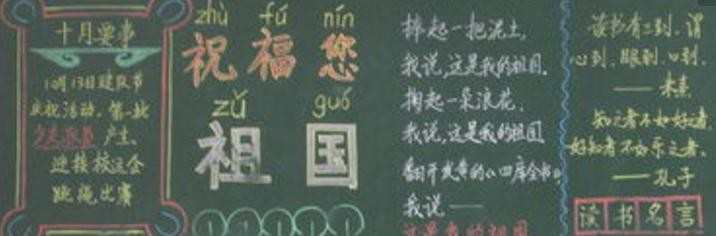 十月要事
10月13日建队节
庆祝活动。第一批
少先队员产生。
迎接校运会
跳绳比赛
zhù fú nín
祝福您
zǔ guó
祖国
捧起一把泥土,
我说,这是我的祖国。
掬起一朵浪花,
我说,这是我的祖国
翻开发黄的《四库全书》,
我说——
这是我的祖国
读书有三到,谓
心到、眼到、口到。
——朱熹
知之者不如好之者,
好之者不如乐之者。
——孔子
读书名言